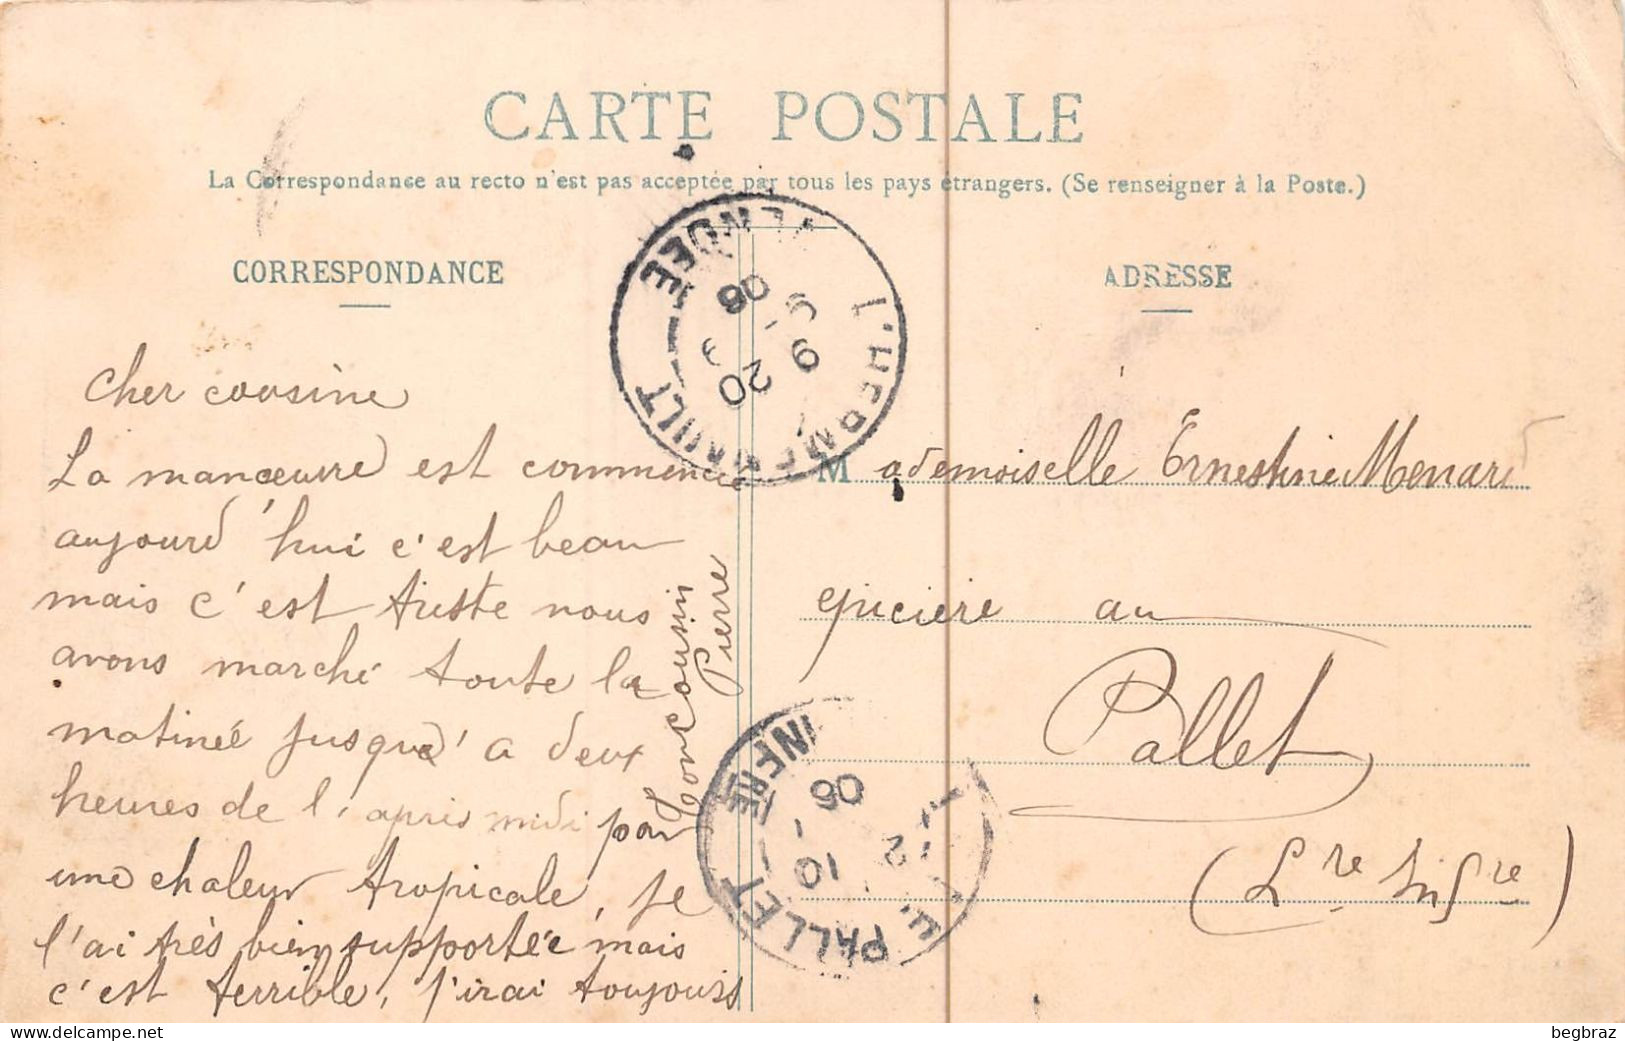 CARTE POSTALE
La Correspondance au recto n'est pas acceptée par tous les pays étrangers. (Se renseigner à la Poste.)
CORRESPONDANCE
cher cousine
La manœuvre est commencée
aujourd'hui c'est beau
mais c'est triste nous
avons marché toute la
matineé jusqua' a deux
heures de l'apris midi par
une chaleur tropicale, je
l'ai très bien supportée mais
c'est terrible, j'irai toujours
ton Cousin
Pierre
ADRESSE
Mademoiselle Ernestine Menard
epiciere au
Pallet
(Lre Infre)
L'HERMENAULT VENDÉE
20
9 - 9
06
LE PALLET INFRE
12
10 -
06
delcampe.net
begbraz